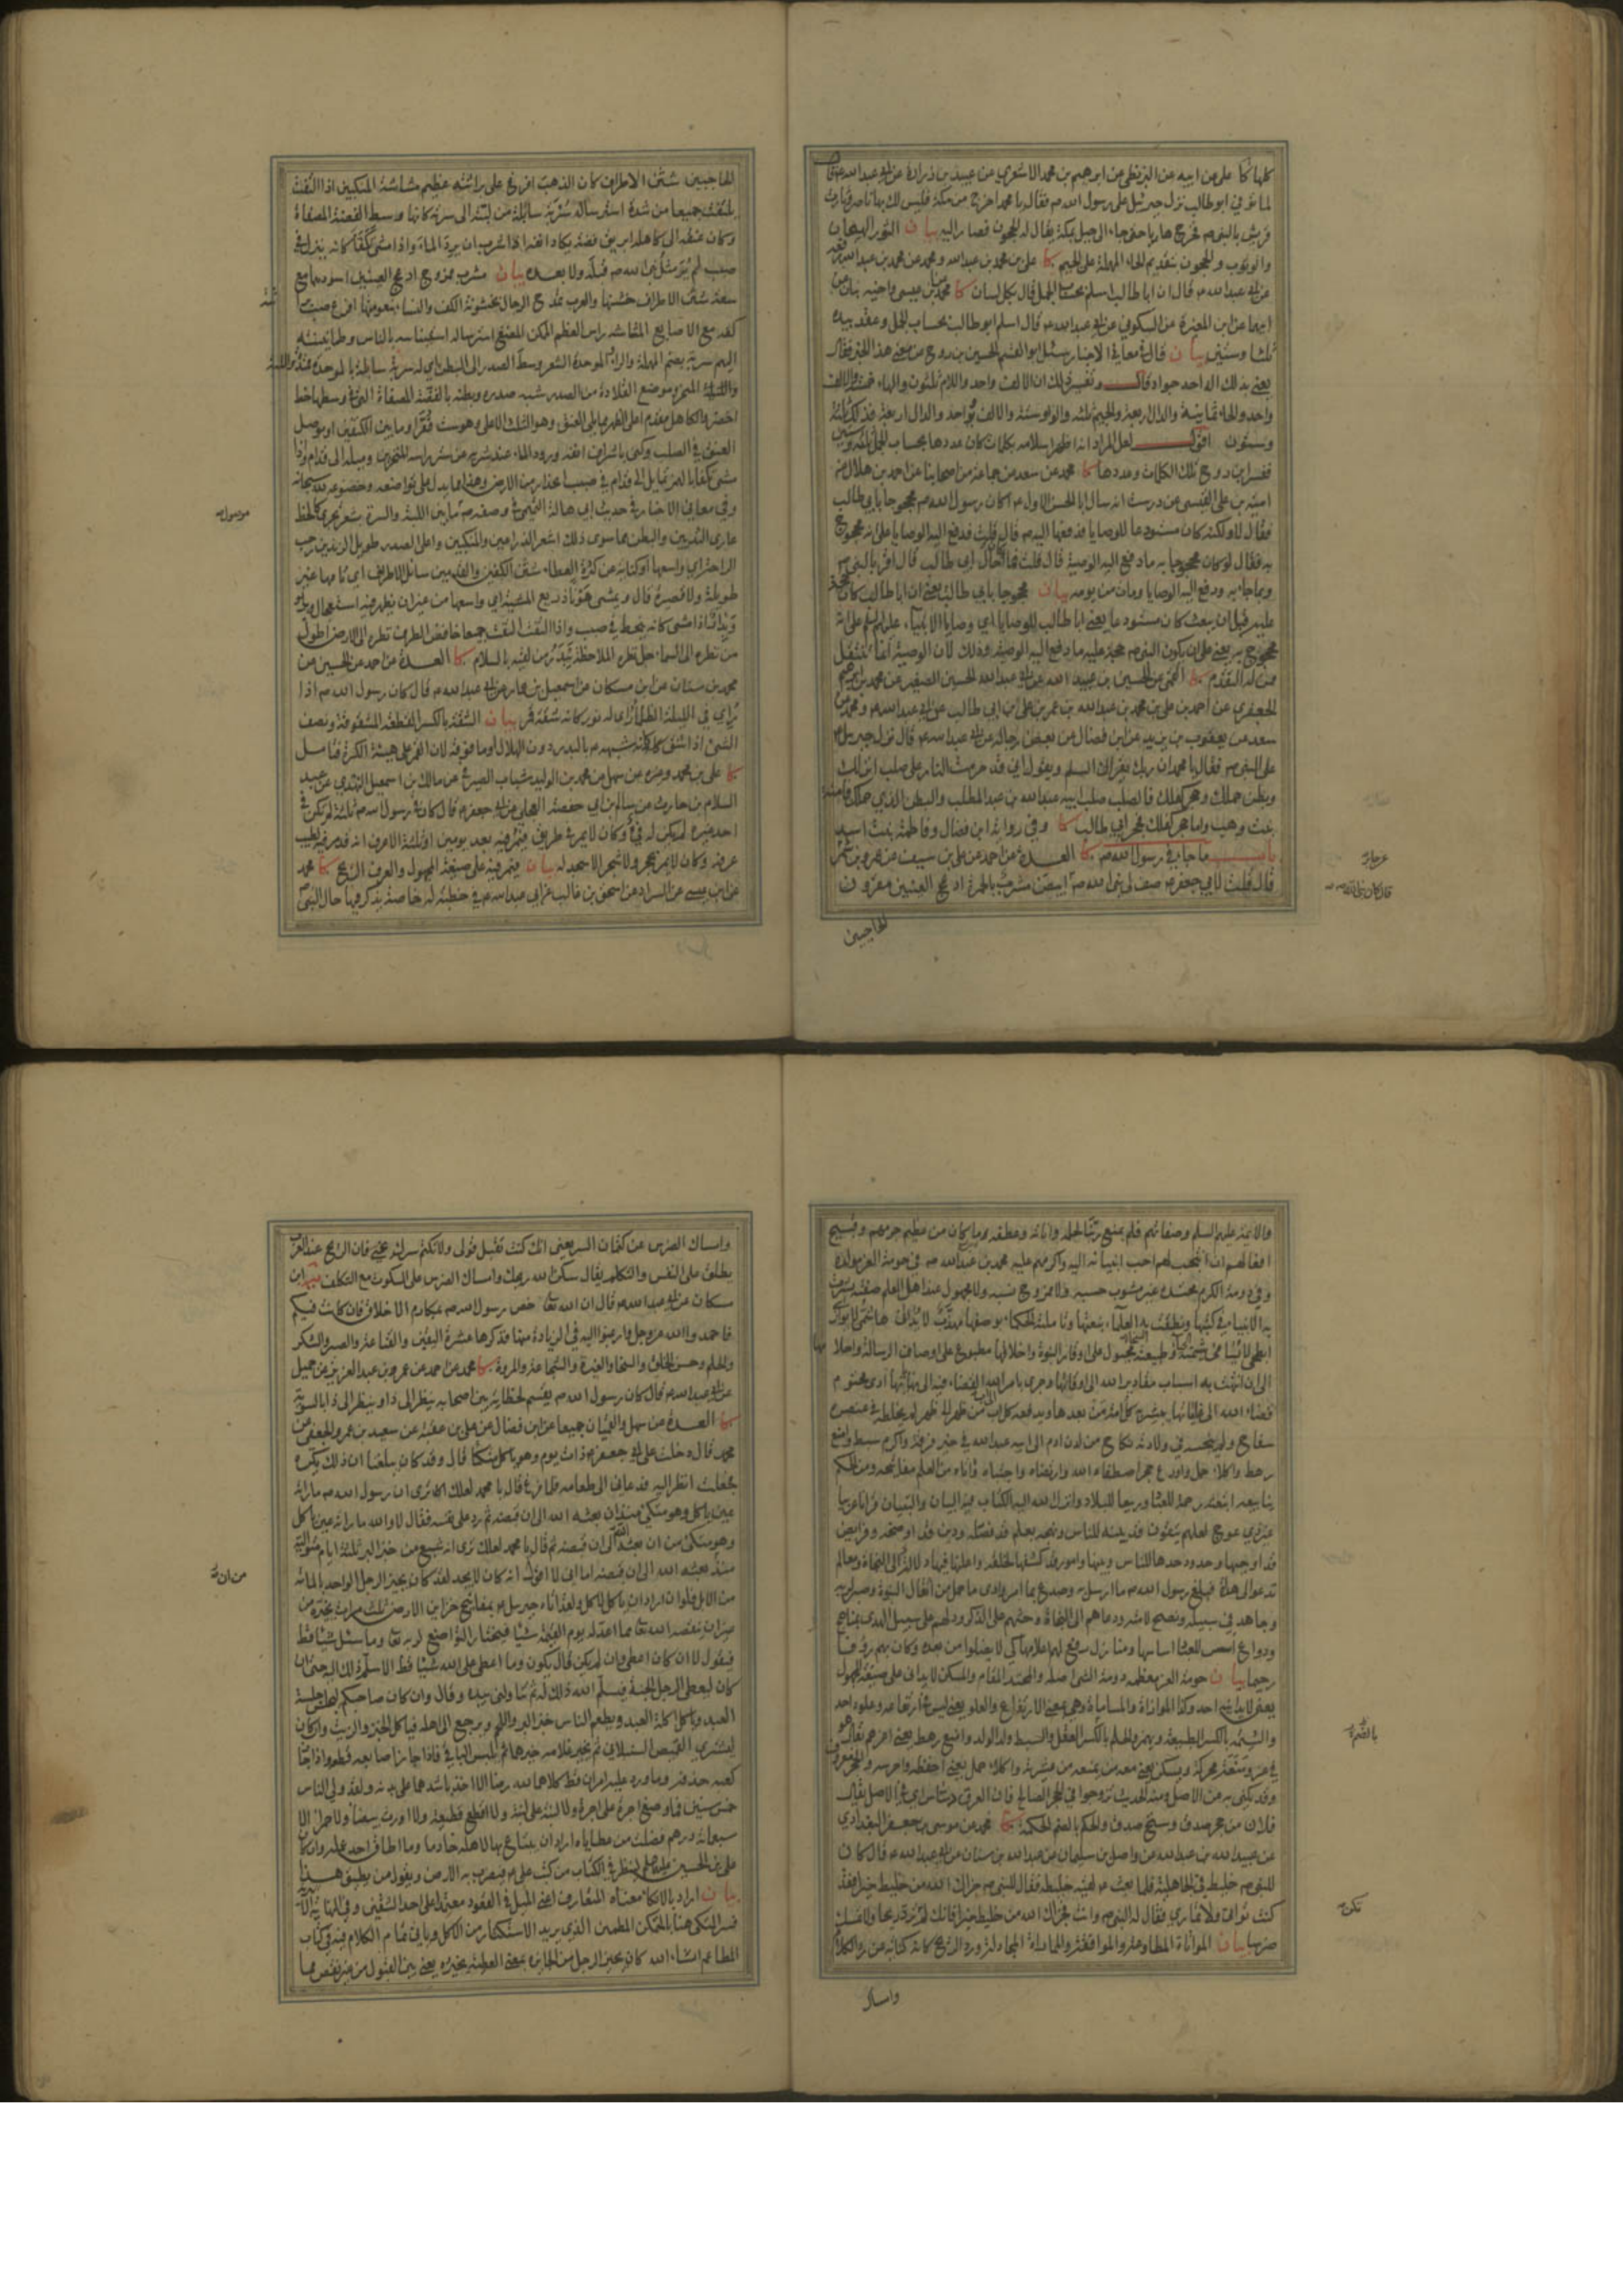 كلها كا علي عن ابيه عن البزنطي عن ابرهيم بن محمد الاشعري عن عبيد بن زرارة عن ابي عبد الله ع قال
لما توفي ابو طالب نزل جبرئيل على رسول الله ص فقال يا محمد اخرج من مكة فليس لك بها ناصر وثارت
قريش بالنبي ص فخرج هاربا حتى جاء الى جبل بمكة يقال له الحجون فصار اليه بيان الثور الهيجان
والوثوب والحجون بتقديم الحاء المهملة على الجيم كا علي بن محمد بن عبد الله ومحمد عن محمد بن عبد الله رفعه
عن ابي عبد الله ع قال ان ابا طالب اسلم بحساب الجمل قال بكل لسان كا محمد عن بن عيسى واخيه بنان عن
ابيهما عن ابن المغيرة عن السكوني عن ابي عبد الله ع قال اسلم ابو طالب بحساب الجمل وعقد بيده
ثلثا وستين بيان قال في معاني الاخبار سئل ابو القسم الحسين بن روح عن معنى هذا الخبر فقال
يعني بذلك اله احد جواد قال وتفسير ذلك ان الالف واحد واللام ثلثون والهاء خمسة والالف
واحد والحاء ثمانية والدال اربعة والجيم ثلثه والواو ستة والالف واحد والدال اربعة فذلك ثلثة
وستون اقول لعل المراد انه اظهر اسلامه بكلمات كان عددها بحساب الجمل ثلثة وستين
ففسر ابن روح تلك الكلمات وعددها كا محمد عن سعد عن جماعة من اصحابنا عن احمد بن هلال عن
امية بن علي القيسي عن درست انه سال ابا الحسن الاول ع اكان رسول الله ص محجوجا بابي طالب
فقال لا ولكنه كان مستودعا للوصايا فدفعها اليه ص قال قلت فدفع اليه الوصايا على انه محجوج
به فقال لو كان محجوجا به ما دفع اليه الوصية قال قلت فما كان حال ابي طالب قال اقر بالنبي ص
وبما جاء به ودفع اليه الوصايا ومات من يومه بيان محجوجا بابي طالب يعني ان ابا طالب كان حجة
عليه قبل ان يبعث كان مستودعا يعني ابا طالب للوصايا اي وصايا الانبياء عليهم السلم على انه
محجوج به يعني على ان يكون النبي ص حجة عليه ما دفع اليه الوصية وذلك لان الوصية انما تنتقل
ممن له التقدم كا القمي عن الحسين بن عبيد الله عن ابي عبد الله الحسين الصغير عن محمد بن ابرهيم
الجعفري عن احمد بن علي بن محمد بن عبد الله بن عمر بن علي بن ابي طالب عن ابي عبد الله ع ومحمد عن
سعد عن يعقوب بن يزيد عن ابن فضال عن بعض رجاله عن ابي عبد الله ع قال نزل جبرئيل ع
على النبي ص فقال يا محمد ان ربك يقرئك السلم ويقول اني قد حرمت النار على صلب انزلك
وبطن حملك وحجر كفلك فالصلب صلب ابيه عبد الله بن عبد المطلب والبطن الذي حملك فامنة
بنت وهب واما حجر كفلك فحجر ابي طالب كا وفي رواية ابن فضال وفاطمة بنت اسد
باب ما جاء في رسول الله ص كا العدة عن احمد عن علي بن سيف عن عمرو بن شمر
قال قلت لابي جعفر ع صف لي نبي الله ص ابيض مشرب بالحمرة ادعج العينين مقرون
الحاجبين
عن جابر
قال كان نبي الله ص
الحاجبين شثن الاطراف كان الذهب افرغ على براثنه عظيم مشاشة المنكبين اذا التفت
يلتفت جميعا من شدة استرساله سربة سائلة من لبته الى سرته كانها وسط الفضة المصفاة
وكان عنقه الى كاهله ابريق فضة يكاد انفه اذا شرب ان يرد الماء واذا مشى تكفأ كانه ينزل في
صبب لم ير مثل نبي الله ص قبله ولا بعده بيان مشرب ممزوج ادعج العينين اسودهما مع
سعة شثن الاطراف خشنها والعرب تمدح الرجال بخشونة الكف والنساء بنعومتها افرغ صبت
كفه مع الاصابع المشاشه راس العظم الممكن المضغ استرساله استيناسه بالناس وطمانينته
اليهم سربة بضم المهملة والراء الموحدة الشعر وسط الصدر الى البطن اي له سربة سايلة بالموحدة
واللبة المنحر وموضع القلادة من الصدر شبه صدره وبطنه بالفضة المصفاة التي في وسطها خط
اخضر والكاهل مقدم اعلى الظهر مما يلي العنق وهو الثلث الاعلى وهو ست فقر او ما بين الكتفين او موصل
العنق في الصلب وكنى باشراف انفه ورود الماء عند شربه عن ستر راسه للتحرين وميله الى قدام واذا
مشى تكفأ بالهمز تمايل الى قدام في ضبب اعتذار من الارض وهذا مما يدل على تواضعه وخضوعه لله سبحانه
وفي معاني الاخبار في حديث ابي هالة التميمي في وصفه ص ما بين اللبة والسرة بشعر يجري كالخط
عاري الثديين والبطن مما سوى ذلك اشعر الذراعين والمنكبين واعلى الصدر طويل الزندين رحب
الراحة اي واسعها او كناية عن كثرة العطاء شثن الكفين والقدمين سائل الاطراف اي تامها غير
طويلة ولا قصيرة قال ويمشي هونا ذريع المشية اي واسعها من غير ان يظهر فيه استعجال
وبدار اذا مشى كانه ينحط في صبب واذا التفت التفت جميعا خافض الطرف نظره الى الارض اطول
من نظره الى السماء جل نظره الملاحظة يبدر من لقيه بالسلام كا العدة عن احمد عن الحسين عن
محمد بن سنان عن ابن مسكان عن اسمعيل بن عمار عن ابي عبد الله ع قال كان رسول الله ص اذا
رئي في الليلة الظلماء رئي له نور كانه شقة قمر بيان الشقة بالكسر القطعة المشقوقة ونصف
الشئ اذا شق كانه شبهه ص بالبدر دون الهلال او ما فوقه لان القمر على هيئة الكرة فتامل
كا علي بن محمد وغيره عن سهل عن محمد بن الوليد شباب الصيرفي عن مالك بن اسمعيل النهدي عن عبد
السلام بن حارث عن سالم بن ابي حفصة العجلي عن ابي جعفر ع قال كان في رسول الله ص ثلثة لم تكن في
احد غيره لم يكن له فئ وكان لا يمر في طريق فيمر فيه بعد يومين او ثلثة الا عرف انه قد مر فيه لطيب
عرفه وكان لا يمر بحجر ولا شجر الا سجد له بيان فيمر فيه على صيغة المجهول والعرف الريح كا محمد
عن ابن عيسى عن السراد عن اسحق بن غالب عن ابي عبد الله ع في خطبة له خاصة يذكر فيها حال النبي
موصول
والائمة عليهم السلم وصفاتهم فلم يمنع ربنا لحلمه واناته وعطفه ما كان من عظيم جرمهم وقبيح
افعالهم ان انتجب لهم احب انبيائه اليه واكرمهم عليه محمد بن عبد الله ص في حومة العز مولده
وفي دومة الكرم محتده غير مشوب حسبه ولا ممزوج نسبه ولا مجهول عند اهل العلم صفته بشرت
به الانبياء في كتبها ونطقت به العلماء بنعتها وتاملته الحكماء بوصفها مهذب لا يدانى هاشمي لا يوازى
ابطحي لا يسامى شيمته الحياء وطبيعته السخاء مجبول على اوقار النبوة واخلاقها مطبوع على اوصاف الرسالة واحلامها
الى ان انتهت به اسباب مقادير الله الى اوقاتها وجرى بامر الله القضاء فيه الى نهاياتها ادى محتوم
قضاء الله الى غاياتها يبشر به كل امة من بعدها ويدفعه كل اب الى اب من ظهر الى ظهر لم يخلطه في عنصره
سفاح ولم ينجسه في ولادته نكاح من لدن ادم الى ابيه عبد الله في خير فرقة واكرم سبط وامنع
رهط واكلاء حمل واودع حجر اصطفاه الله وارتضاه واجتباه واتاه من العلم مفاتيحه ومن الحكم
ينابيعه ابتعثه رحمة للعباد وربيعا للبلاد وانزل الله اليه الكتاب فيه البيان والتبيان قرانا عربيا
غير ذي عوج لعلهم يتقون قد بينه للناس ونهجه بعلم قد فصله ودين قد اوضحه وفرايض
قد اوجبها وحدود حدها للناس وبينها وامور قد كشفها لخلقه واعلنها فيها دلالة الى النجاة ومعالم
تدعو الى هداه فبلغ رسول الله ص ما ارسل به وصدع بما امر وادى ما حمل من اثقال النبوة وصبر لربه
وجاهد في سبيله ونصح لامته ودعاهم الى النجاة وحثهم على الذكر ودلهم على سبيل الهدى بمناهج
ودواع اسس للعباد اساسها ومنار رفع لهم اعلامها كي لا يضلوا من بعده وكان بهم رؤفا
رحيما بيان حومة العز معظمه دومة الشئ اصله والمحتد المقام والمسكن لا يدانى على صيغة المجهول
يعني لا يدانيه احد وكذا الموازاة والمساماة وهي بمعنى الارتفاع والعلو يعني ليس في ارتفاعه وعلوه احد
والشيمة بالكسر الطبيعة ويهمز والحلم بالكسر العقل والسبط ولد الولد وامنع رهط يعني اعزهم يقال هو
في عز ومنعة محركة ويسكن يعني معه من يمنعه من عشيرته واكلاء حمل يعني احفظه واحرسه
وقد يكنى به عن الاصل ومنه الحديث تزوجوا في الحجر الصالح فان العرق دساس اي في الاصل يقال
فلان من حجر صدق وسنخ صدق والحكم بالضم الحكمة كا محمد عن موسى بن جعفر البغدادي
عن عبيد الله بن عبد الله عن واصل بن سليمان عن عبد الله بن سنان عن ابي عبد الله ع قال كان
للنبي ص خليط في الجاهلية فلما بعث ع لقيه خليطه فقال للنبي ص جزاك الله من خليط خيرا فقد
كنت تواتي ولا تماري فقال له النبي ص وانت فجزاك الله من خليط خيرا فانك لم ترد ربحا ولا تمسك
ضرسا بيان المواتاة المطاوعة والموافقة والمماراة المجادلة ورد الريح كانه كناية عن رد الكلام
وامساك
بالضم
تكن
وامساك الضرس عن كتمان السر يعني انك كنت تقبل قولي ولا تكتم سرك عني فان الريح عند العرب
يطلق على النفس والتكلم يقال سكن الله ريحك وامساك الضرس على السكوت مع التكلف ابن
مسكان عن ابي عبد الله ع قال ان الله تعالى خص رسول الله ص بمكارم الاخلاق فان كانت فيكم
فاحمدوا الله عز وجل وارغبوا اليه في الزيادة منها فذكرها عشرة اليقين والقناعة والصبر والشكر
والحلم وحسن الخلق والسخاء والغيرة والشجاعة والمروة كا محمد عن احمد عن عمرو بن عبد العزيز عن جميل
عن ابي عبد الله ع قال كان رسول الله ص يقسم لحظاته بين اصحابه ينظر الى ذا وينظر الى ذا بالسوية
كا العدة عن سهل والقميان جميعا عن ابن فضال عن علي بن عقبة عن سعيد بن عمرو الجعفي عن
محمد قال دخلت على ابي جعفر ع ذات يوم وهو ياكل متكئا قال وقد كان يبلغنا ان ذلك يكره
فجعلت انظر اليه فدعاني الى طعامه فلما فرغ قال يا محمد لعلك ترى ان رسول الله ص ما راته
عين ياكل وهو متكئ منذ ان بعثه الله الى ان قبضه ثم رد على نفسه فقال لا والله ما راته عين ياكل
وهو متكئ من ان بعثه الله الى ان قبضه ثم قال يا محمد لعلك ترى انه شبع من خبز البر ثلثة ايام متوالية
منذ بعثه الله الى ان قبضه اما اني لا اقول انه كان لا يجد لقد كان يجيز الرجل الواحد بالمائة
من الابل فلو اراد ان ياكل لاكل ولقد اتاه جبرئيل ع بمفاتيح خزاين الارض ثلث مرات يخيره من
غير ان ينقصه الله تعالى مما اعد له يوم القيمة شيئا فيختار التواضع لربه تعالى وما سئل شيئا قط
فيقول لا ان كان اعطى وان لم يكن قال يكون وما اعطى على الله شيئا قط الا سلم ذلك اليه حتى ان
كان ليعطي الرجل الجنة فيسلم الله ذلك له ثم تناولني بيده وقال وان كان صاحبكم ليجلس جلسة
العبد وياكل اكلة العبد ويطعم الناس خبز البر واللحم ويرجع الى اهله فياكل الخبز والزيت وان كان
ليشتري القميص السنبلاني ثم يخير غلامه خيرهما ثم يلبس الباقي فاذا جاز اصابعه قطعه واذا جاز
كعبه حذفه وما ورد عليه امران قط كلاهما لله رضا الا اخذ باشدهما على بدنه ولقد ولي الناس
خمس سنين فما وضع اجرة على اجرة ولا لبنة على لبنة ولا اقطع قطيعة ولا اورث بيضاء ولا حمراء الا
سبعمائة درهم فضلت من عطاياه اراد ان يبتاع بها لاهله خادما وما اطاق احد عمله وان كان
علي بن الحسين عليهما السلم لينظر في الكتاب من كتب علي ع فيضرب به الارض ويقول من يطيق هذا
بيان اراد بالاتكاء معناه المتعارف اعني الميل في القعود معتمدا على احد الشقين وفي النهاية
فسر المتكئ هنا بالمتمكن المطمئن الذي يريد الاستكثار من الاكل وياتي تمام الكلام فيه في كتاب
المطاعم انشاء الله كان يجيز الرجل من الجايزة بمعنى العطية يخيره يعني بين القبول من غير نقص مما